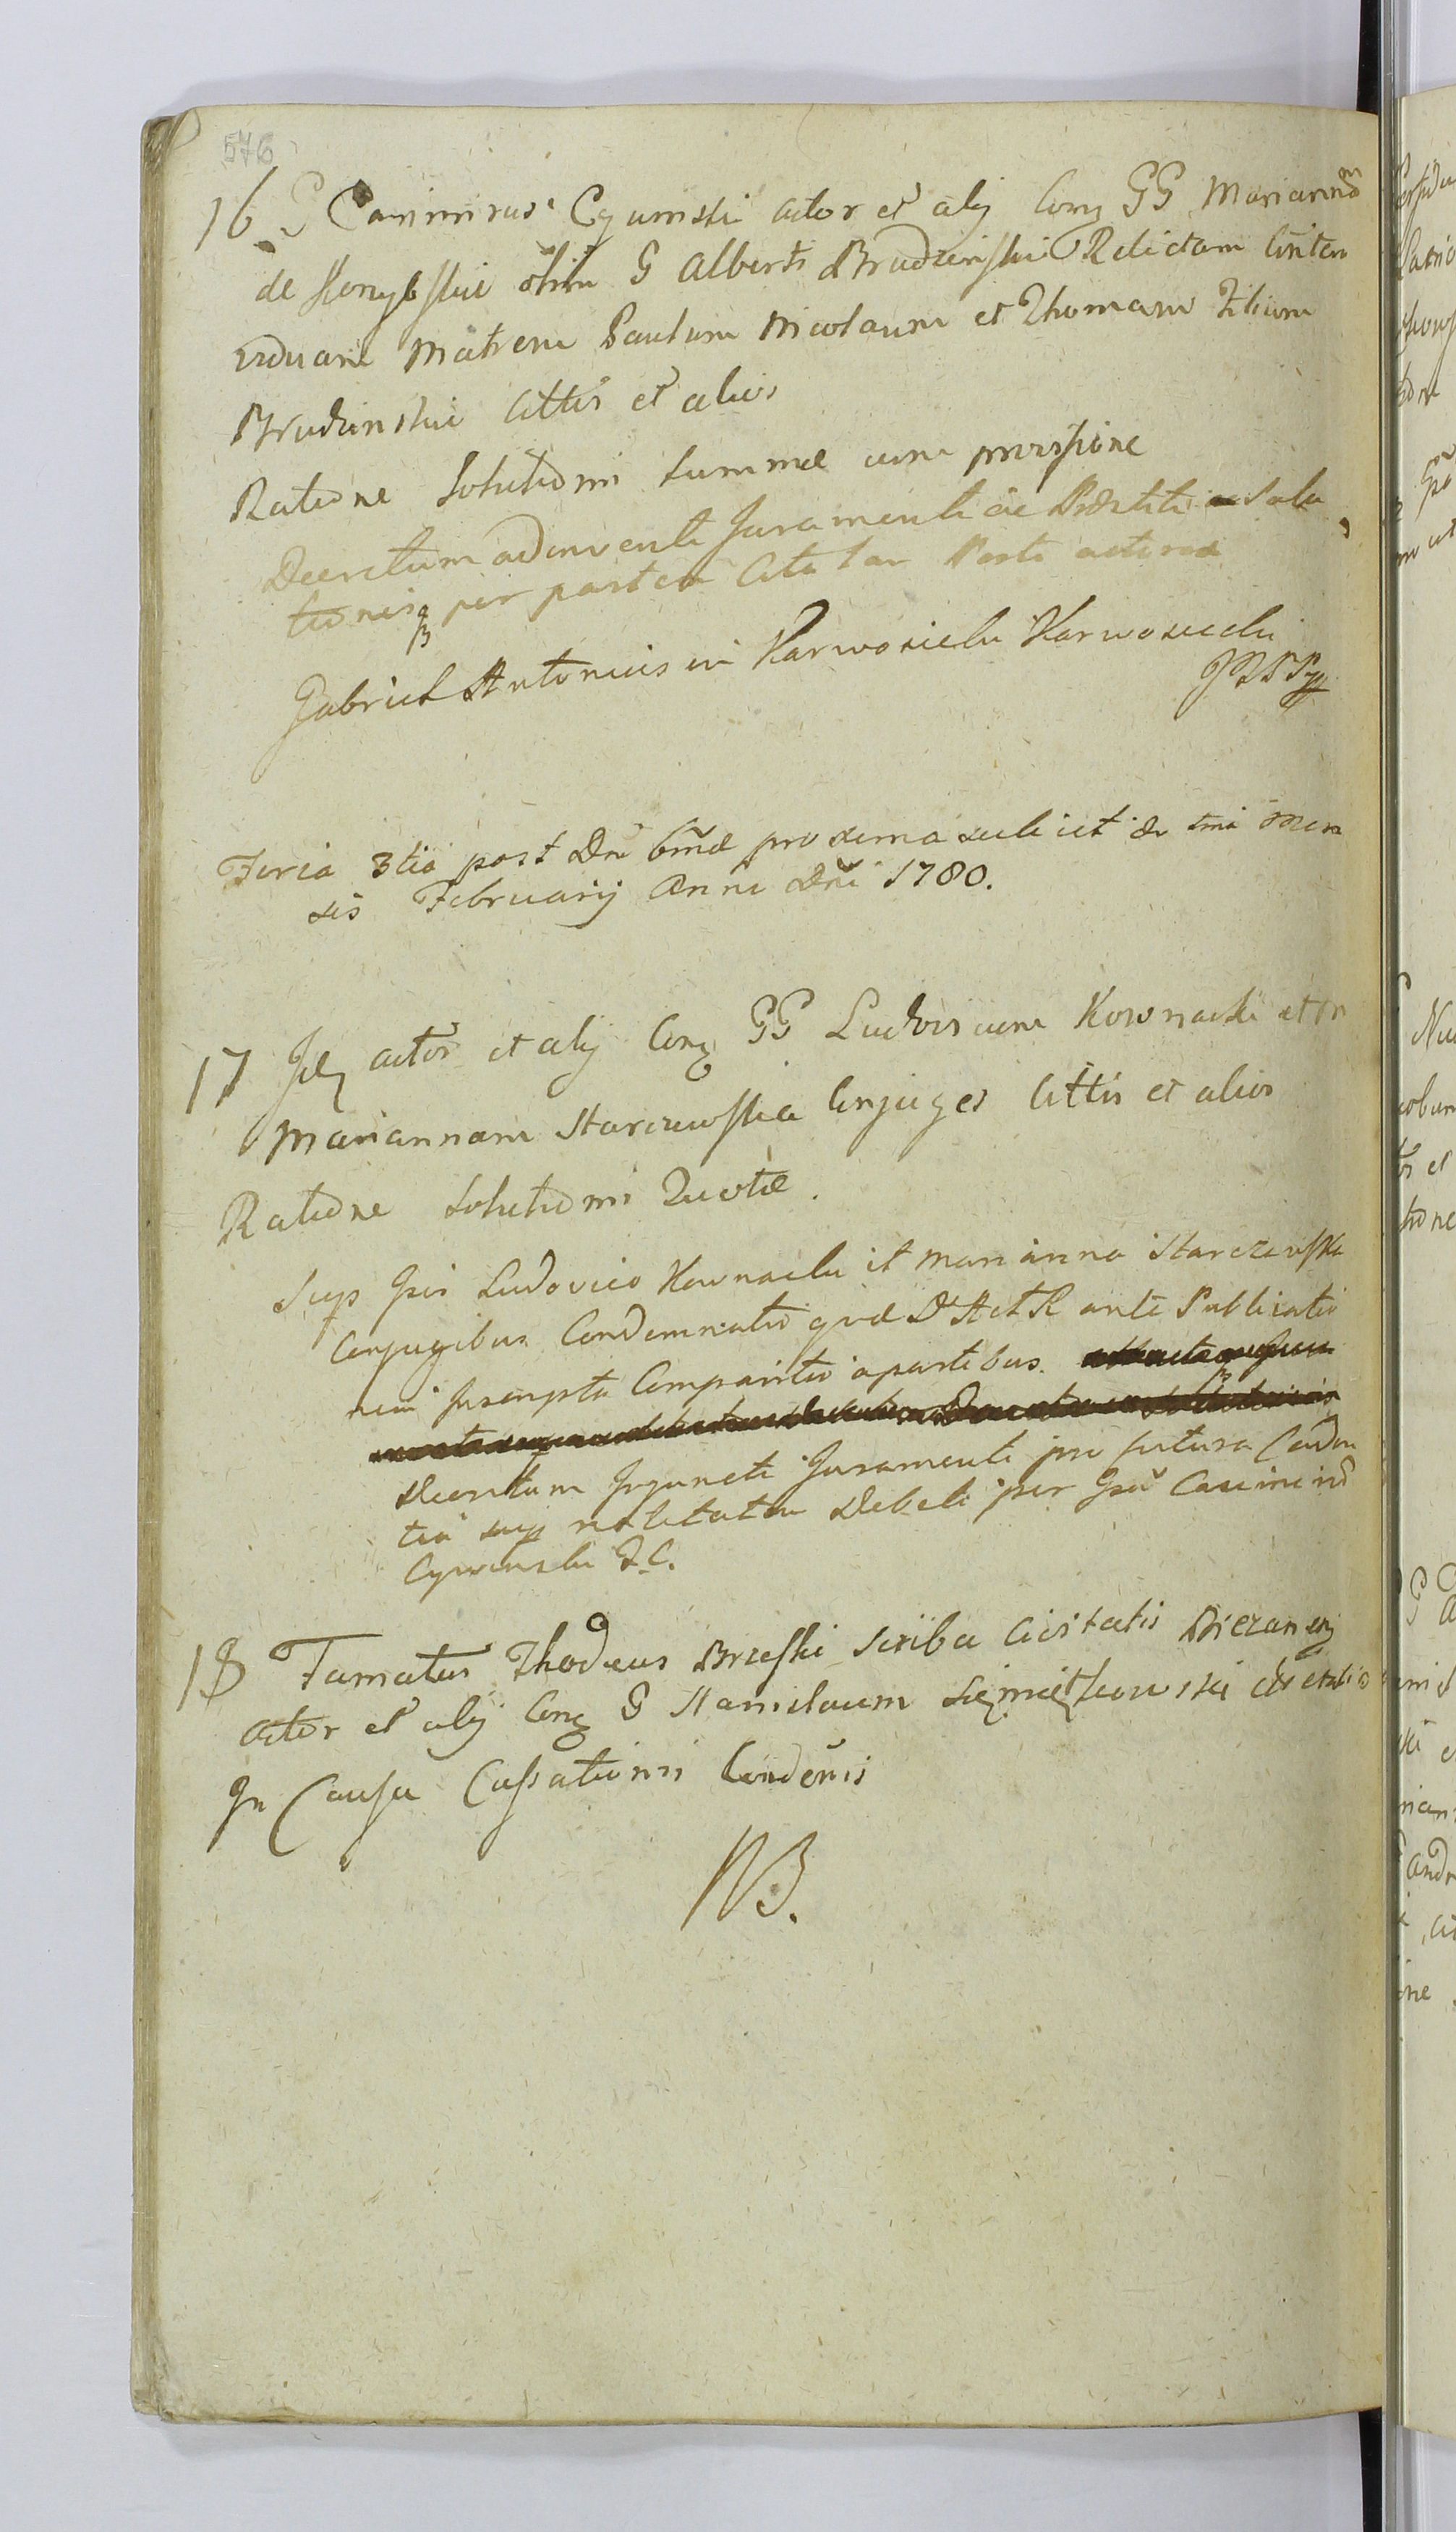 576
16 G Casimirus Cywinski Actor et alij Conq GG Mariannam
de olim G Alberti Brudzinski Relictam
viduam Matrem Paulum Nicolaum et Thomam Filium
Brudzinskie Cittos et alios
Ratione Solutionis Summæ cum provisione
Decretum adinventi Juramenti ac Solu
tionis per partem Citatam Parti actoreæ
Gabriel Antonius in Karwosieki Karwosiecki
Feria 3tia post Dnī proxima scilicet die 1mā Men
sis Februarij Anni Dnī 1780.
17 Actor et alij Conq GG Ludovicum Kownacki et
Mariannam Starczewska Conjuges Cittos et alios
Ratione Solutionis Quotæ.
Sup Gsis Ludovico Kownacki et Marianna Starczewska
Conjugibus Condemnatio ante Publicatio
nem Inscripta Comparitio a partibus.
Decretum Injuncti Juramenti pro futura Caden
tia sup realitatem Debiti per Casimirū
Cywinski
18 Famatus Thadeus Brzeski Scriba Civitatis
Actor et alij Conq G Stanislaum et alios
In Causa Cassationis Condēnis
NB.